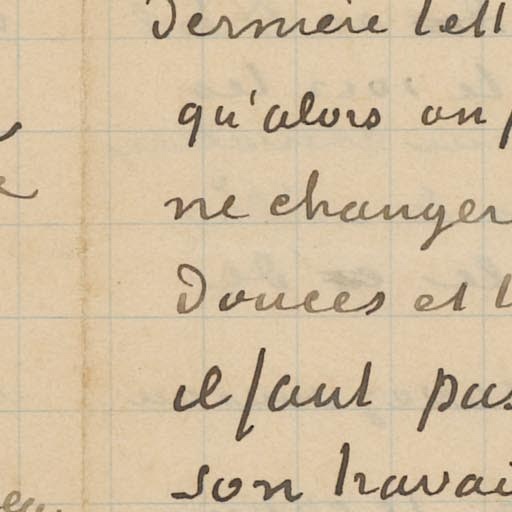 dernière lett
qu'alors on p
ne changer
douces et t
il faut pas
son travai